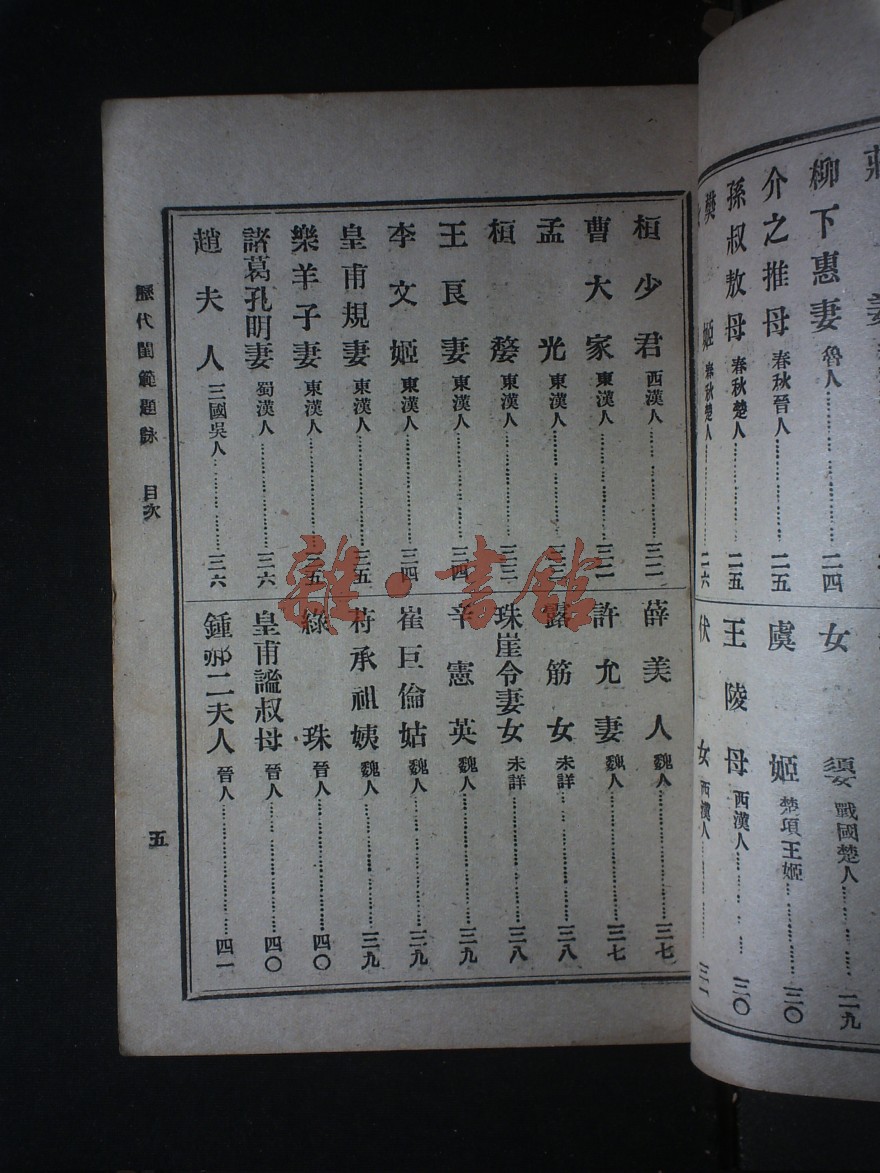 柳下惠妻 魯人 二四
介之推母 春秋晉人 二五
孫叔敖母 春秋楚人 二五
樊姬 春秋楚人 二六
女嬃 戰國楚人 二九
虞姬 楚項王姬 三〇
王陵母 西漢人 三〇
伏女 西漢人
桓少君 西漢人
曹大家 東漢人
孟光 東漢人
桓嫠 東漢人
王良妻 東漢人 三四
李文姬 東漢人 三四
皇甫規妻 東漢人 三五
樂羊子妻 東漢人 三五
諸葛孔明妻 蜀漢人 三六
趙夫人 三國吳人 三六
薛美人 魏人 三七
許允妻 魏人 三七
露筋女 未詳 三八
珠崖令妻女 未詳 三八
辛憲英 魏人 三九
崔巨倫姑 魏人 三九
苻承祖姨 魏人 三九
綠珠 晉人 四〇
皇甫謐叔母 晉人 四〇
鍾郝二夫人 晉人 四一
歷代閨範題詠 目次 五
雜·書館